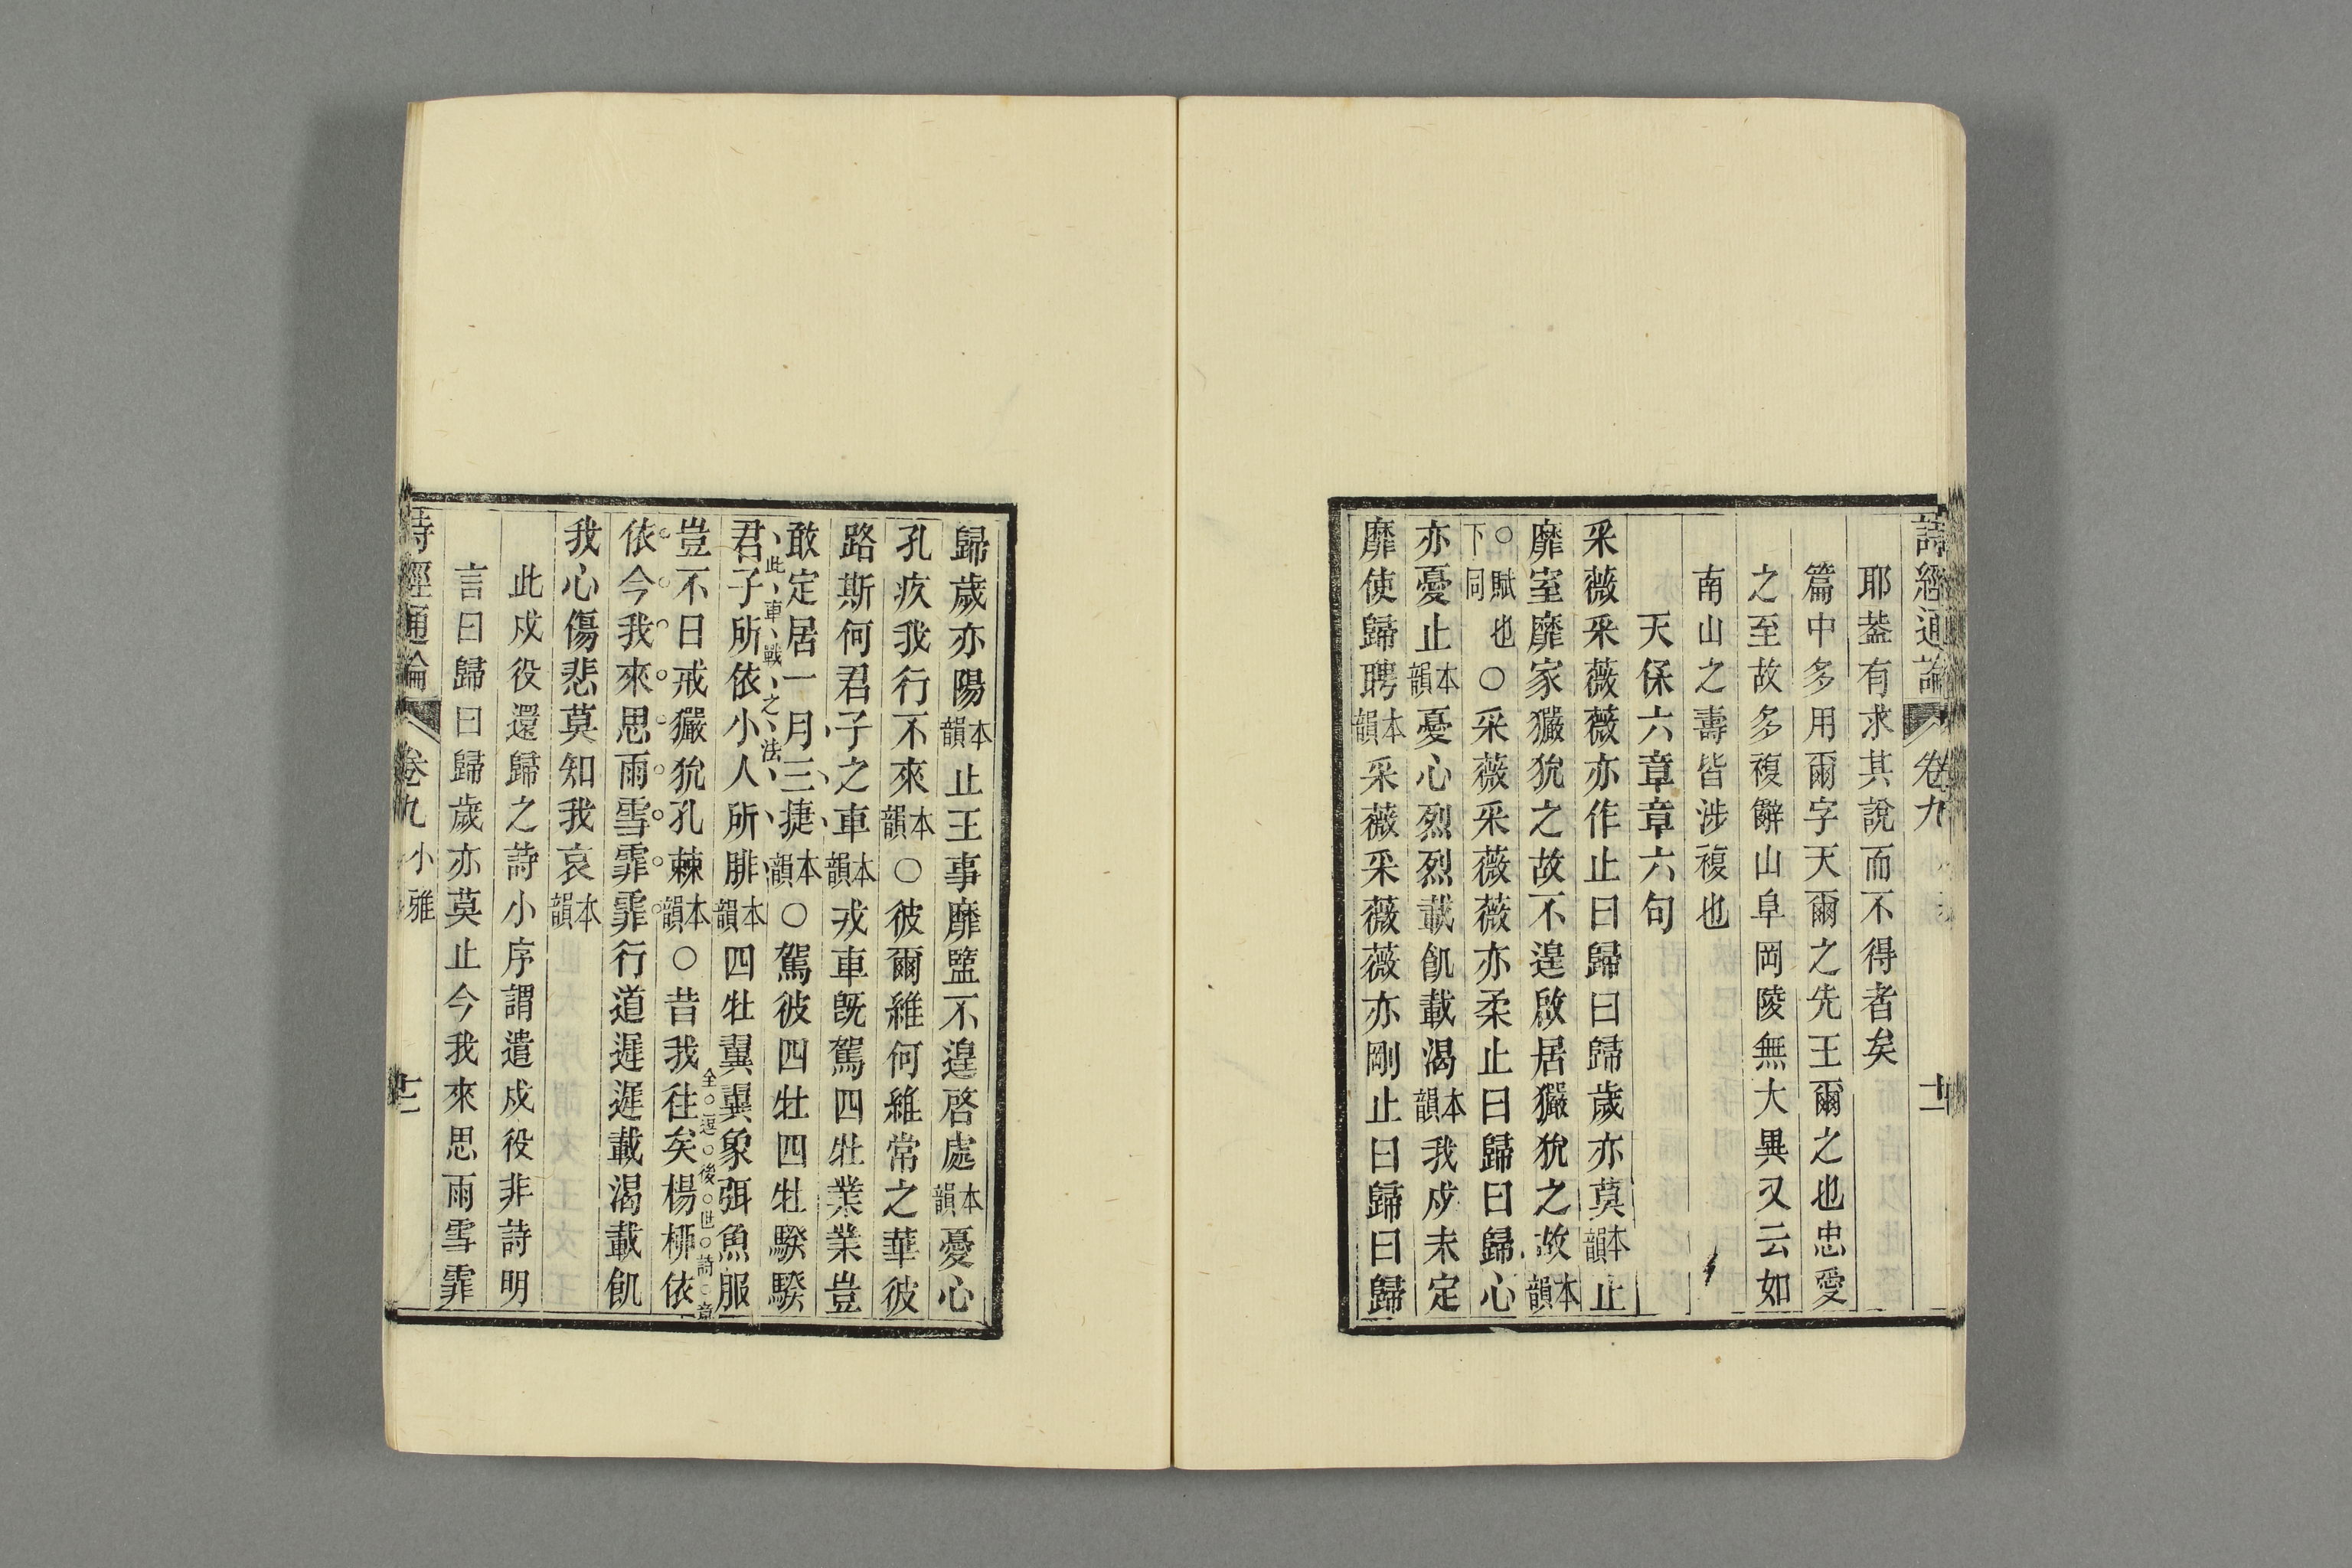 詩經通論 卷九 十二
耶葢有求其說而不得者矣
篇中多用爾字天爾之先王爾之也忠愛
之至故多複辭山阜岡陵無大異又云如
南山之壽皆涉複也
天保六章章六句
采薇采薇薇亦作止曰歸曰歸歲亦莫本韻止
靡室靡家玁狁之故不遑啟居玁狁之故本韻
○賦也下同○采薇采薇薇亦柔止曰歸曰歸心
亦憂止本韻憂心烈烈載飢載渴本韻我戍未定
靡使歸聘本韻采薇采薇薇亦剛止曰歸曰歸
歸歲亦陽本韻止王事靡盬不遑啓處本韻憂心
孔疚我行不來本韻○彼爾維何維常之華彼
路斯何君子之車本韻戎車既駕四牡業業豈
敢定居一月三捷本韻○駕彼四牡四牡騤騤
此車戰之法
君子所依小人所腓本韻四牡翼翼象弭魚服
豈不日戒玁狁孔棘本韻○昔我往矣楊柳依
全逗後世詩章
依今我來思雨雪霏霏行道遲遲載渴載飢
我心傷悲莫知我哀本韻
此戍役還歸之詩小序謂遣戍役非詩明
言曰歸曰歸歲亦莫止今我來思雨雪霏
詩經通論 卷九 小雅 十三